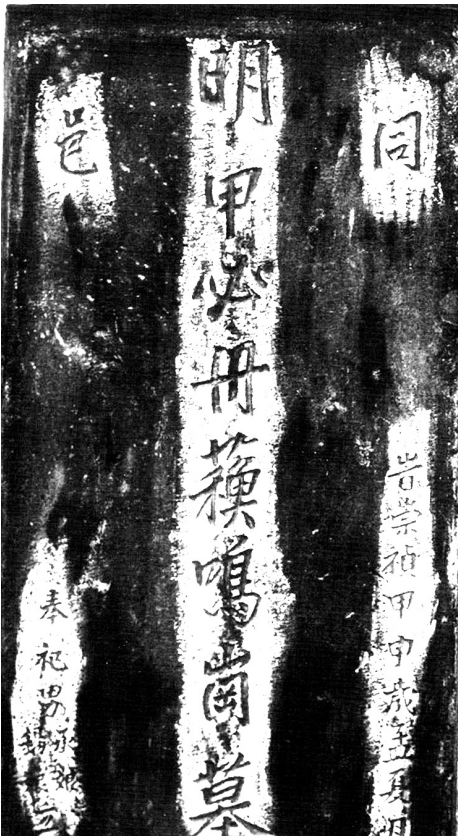 同
旹崇禎甲申歲孟夏月
明甲必冊蘓鳴崗墓
邑
奉祀男